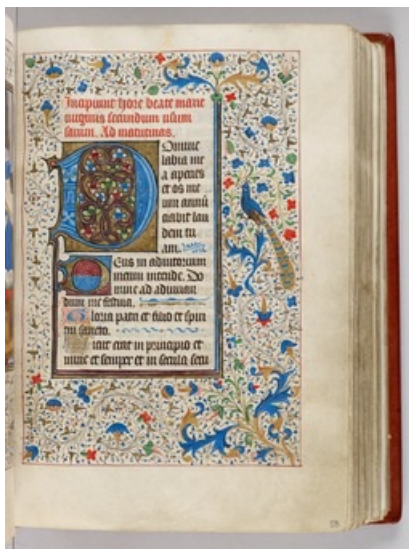 Incipiunt hore beate marie
virginis secundum usum
sarum. Ad matutinas.
Domine
labia me
a aperies
et os me
um annū
ciabit lau
dem tu
am.
Deus in adiutorium
meum intende. Do
mine ad adiuuan
dum me festina.
Gloria patri et filio et spiri
tui sancto.
Sicut erat in principio et
nunc et semper et in secula secu